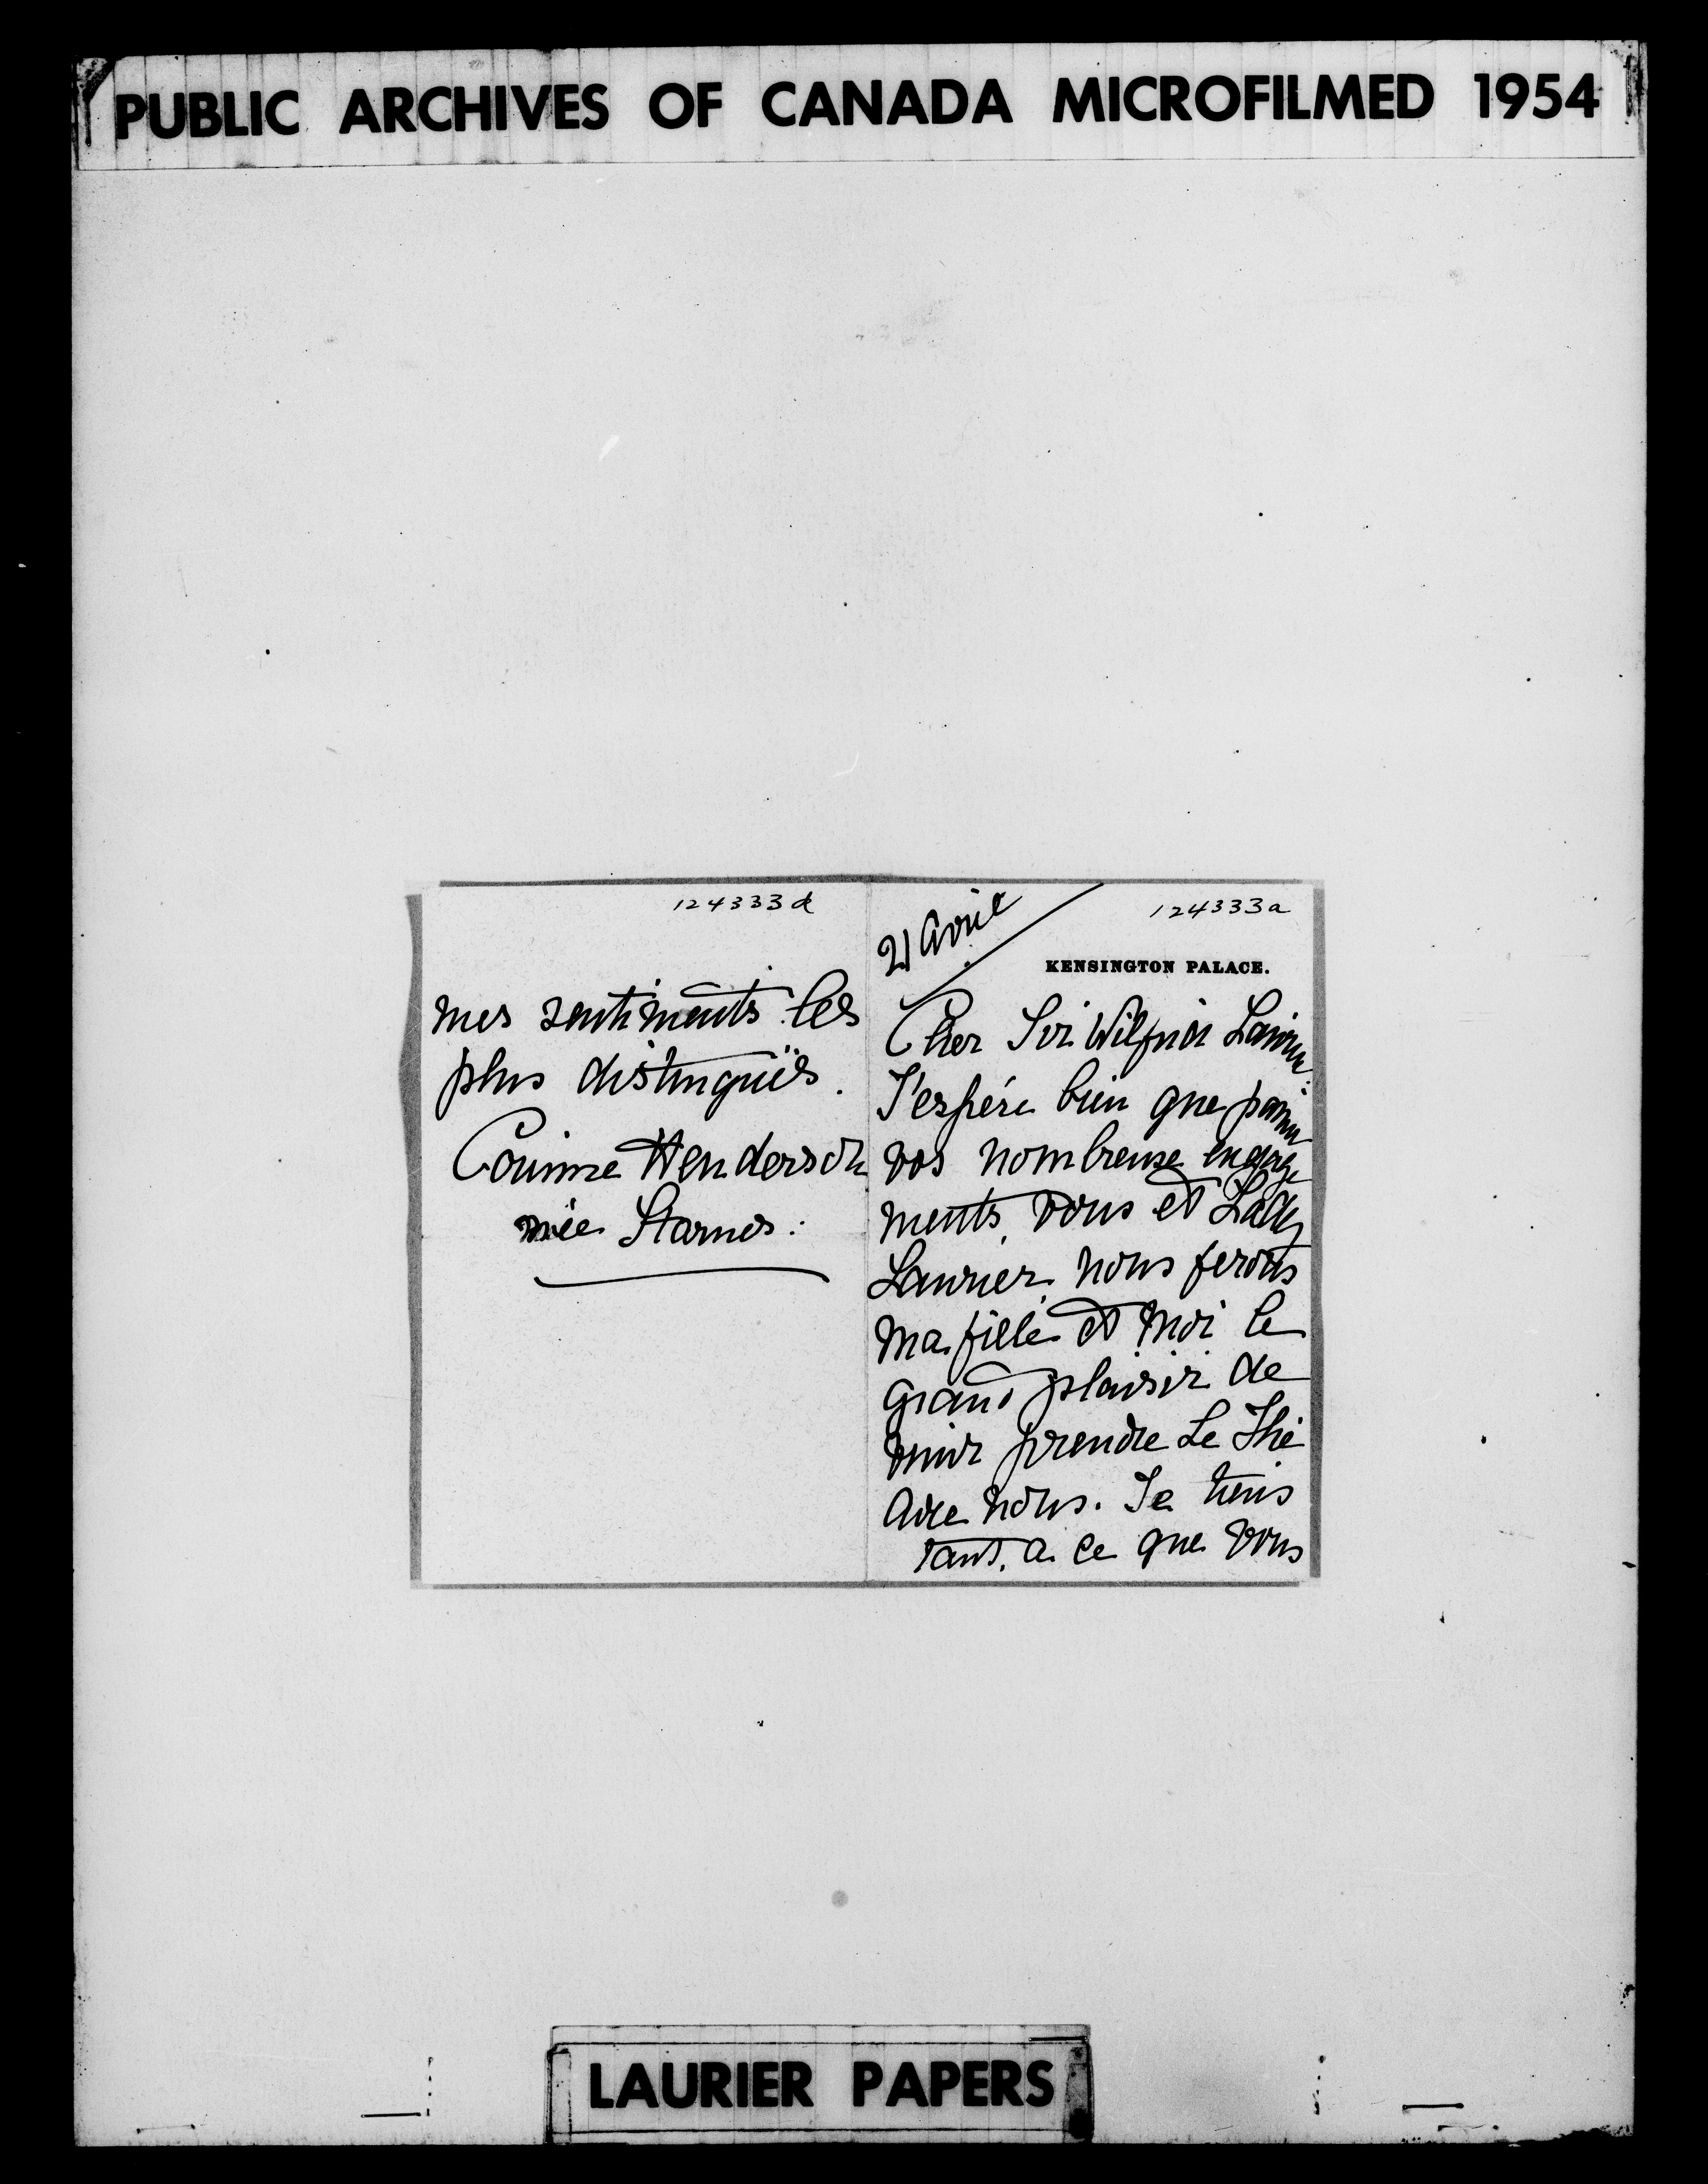 PUBLIC ARCHIVES OF CANADA MICROFILMED 1954
124333d
mes sentiments les
plus distinguës.
Corinne Henderson
née Starnes:
124333a
21 Avril
KENSINGTON PALACE.
Cher Sir Wilfrid Laurier:
J'espére bien que parmi
vos nombreuse engage
ments, vous et Lady
Laurier, nous ferons
ma fille et moi le
grand plaisir de
venir prendre Le Thé
avec nous. Je tiens
tant, a ce que vous
LAURIER PAPERS